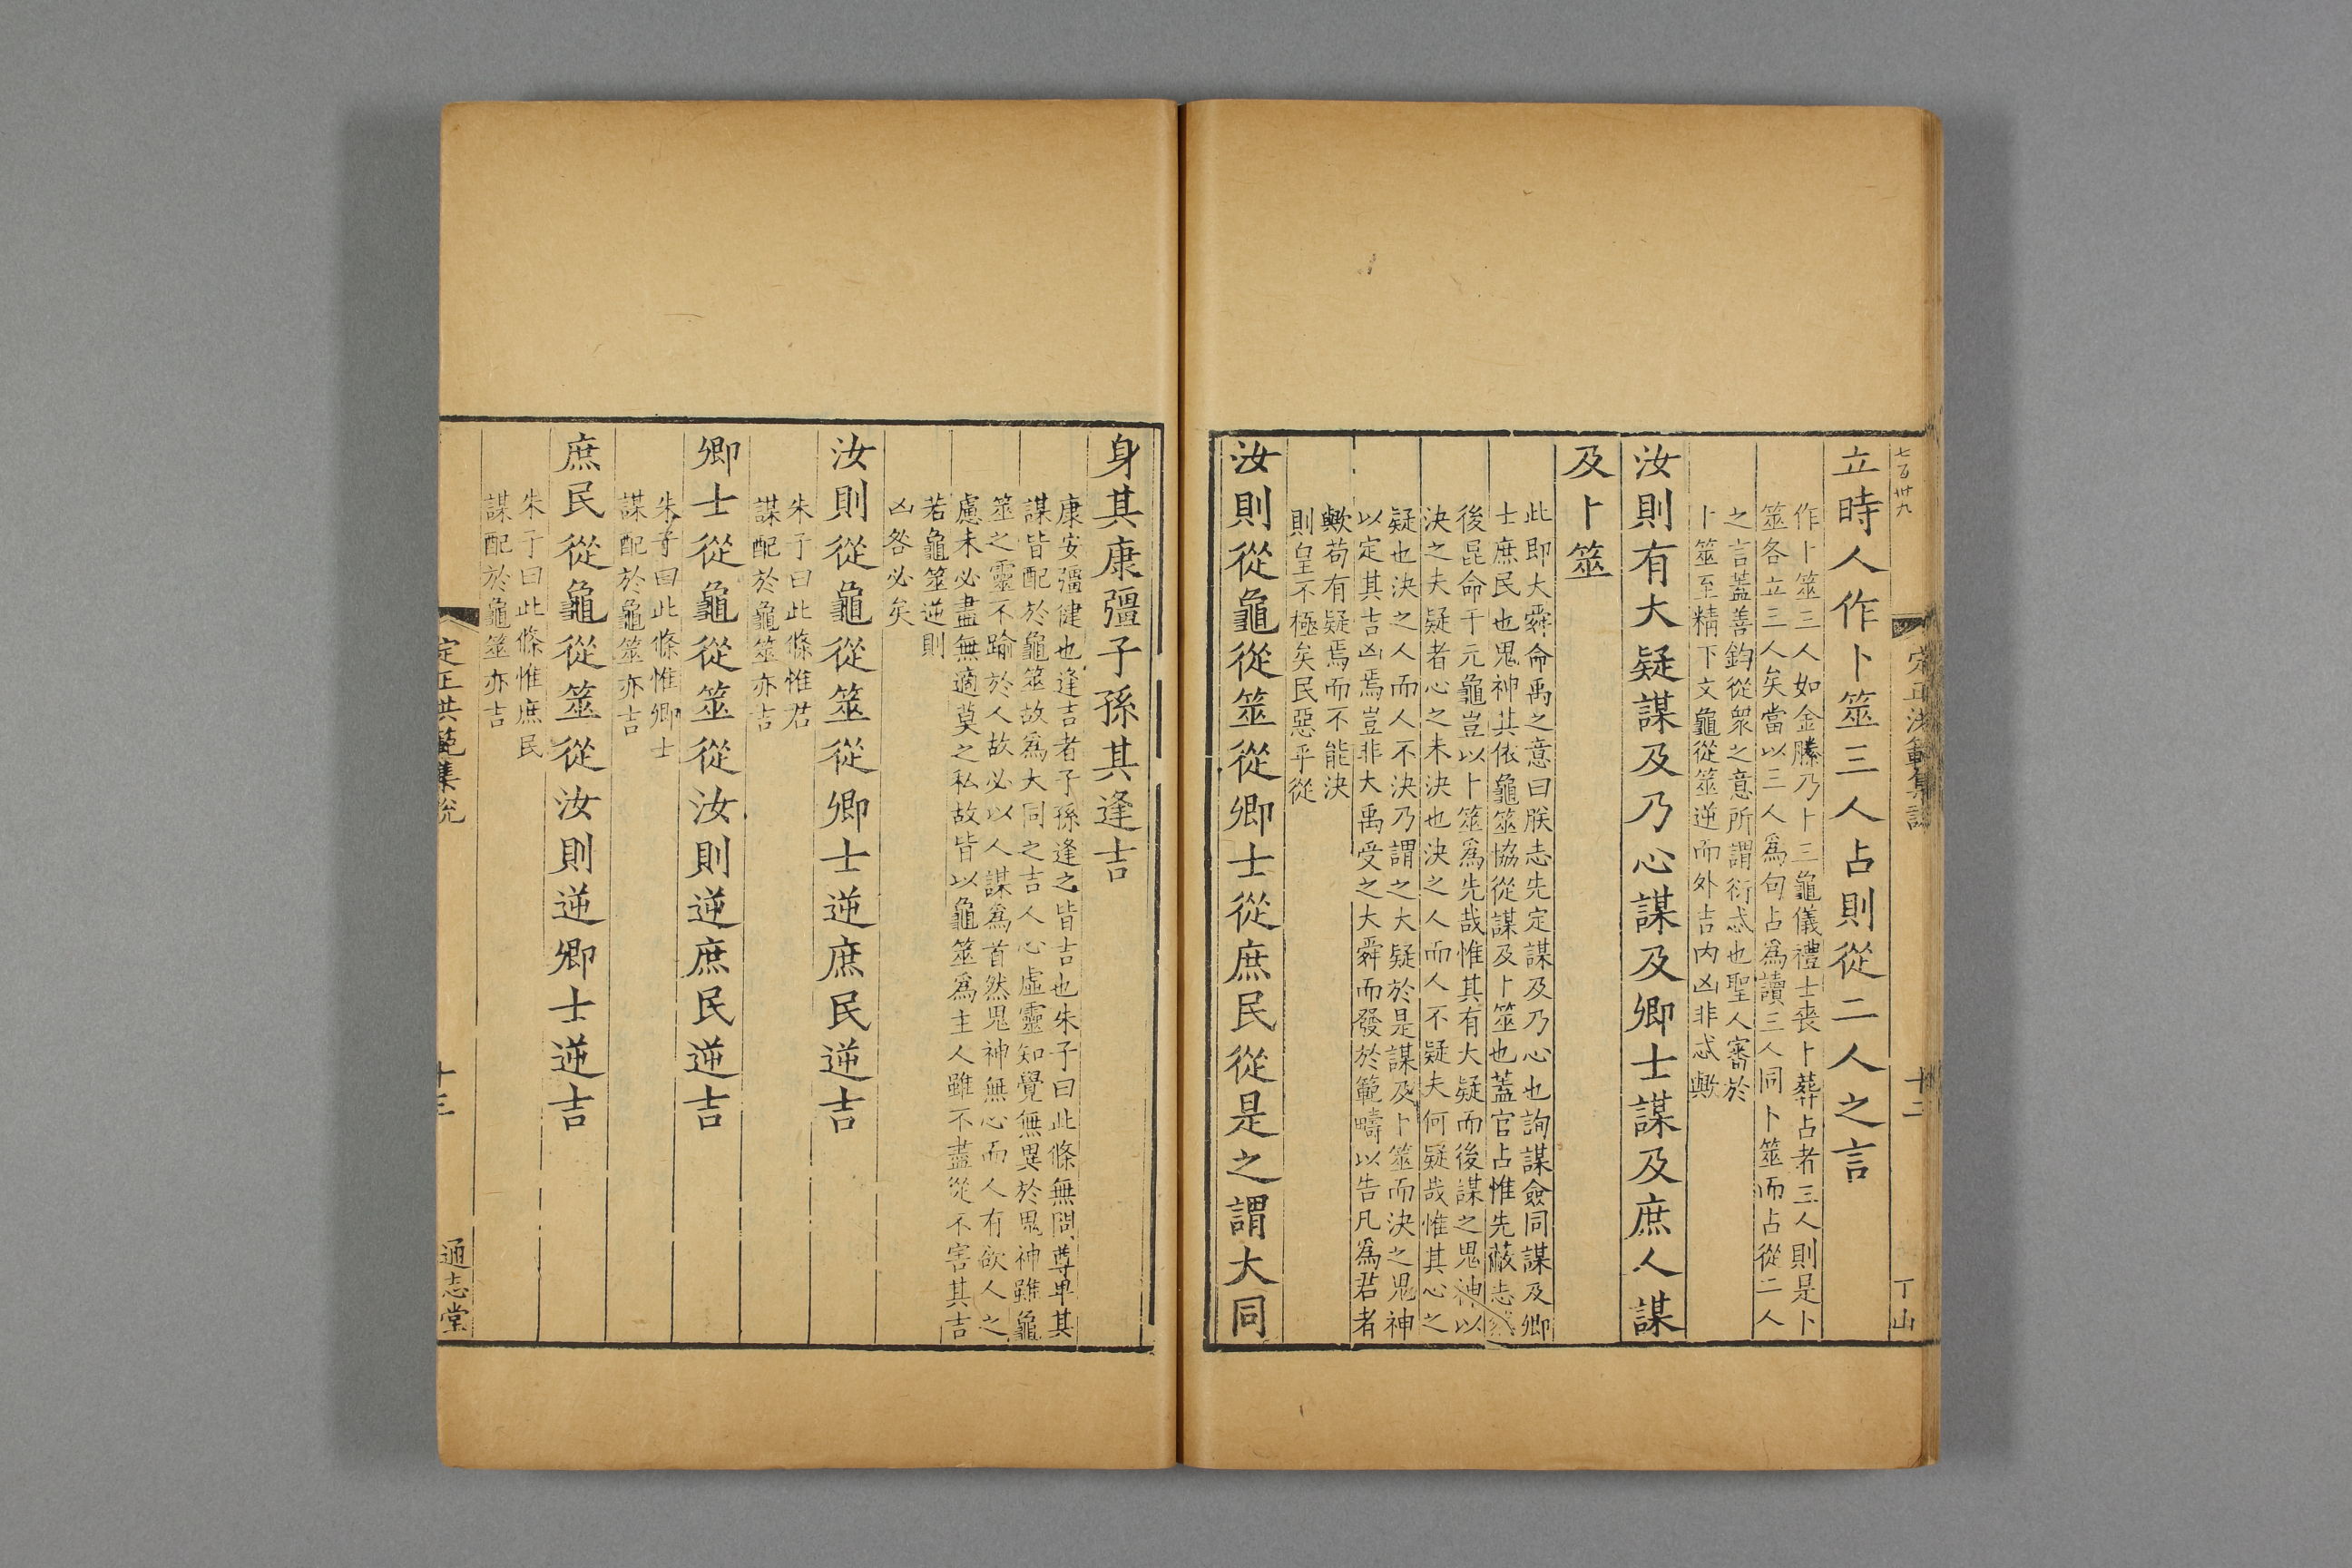 七百卅九
定正洪範集說
十二
丁山
立時人作卜筮三人占則從二人之言
作卜筮三人如金縢乃卜三龜儀禮士喪卜葬占者三人則是卜
筮各立三人矣當以三人為句占為讀三人同卜筮而占從二人
之言蓋善鈞從衆之意所謂衍忒也聖人審於
卜筮至精下文龜從筮逆而外吉内凶非忒歟
汝則有大疑謀及乃心謀及卿士謀及庶人謀
及卜筮
此即大舜命禹之意曰朕志先定謀及乃心也詢謀僉同謀及卿
士庶民也鬼神其依龜筮協從謀及卜筮也蓋官占惟先蔽志
後昆命于元龜豈以卜筮為先哉惟其有大疑而後謀之鬼神以
決之夫疑者心之未決也決之人而人不疑夫何疑哉惟其心之
疑也決之人而人不決乃謂之大疑於是謀及卜筮而決之鬼神
以定其吉凶焉豈非大禹受之大舜而發於範疇以告凡為君者
歟苟有疑焉而不能決
則皇不極矣民惡乎從
汝則從龜從筮從卿士從庶民從是之謂大同
身其康彊子孫其逢吉
康安彊健也逢吉者子孫逢之皆吉也朱子曰此條無問尊卑其
謀皆配於龜筮故為大同之吉人心虛靈知覺無異於鬼神雖龜
筮之靈不踰於人故必以人謀為首然鬼神無心而人有欲人之
慮未必盡無適莫之私故皆以龜筮為主人雖不盡從不害其吉
若龜筮逆則
凶咎必矣
汝則從龜從筮從卿士逆庶民逆吉
朱子曰此條惟君
謀配於龜筮亦吉
卿士從龜從筮從汝則逆庶民逆吉
朱子曰此條惟卿士
謀配於龜筮亦吉
庶民從龜從筮從汝則逆卿士逆吉
朱子曰此條惟庶民
謀配於龜筮亦吉
定正洪範集說
十三
通志堂